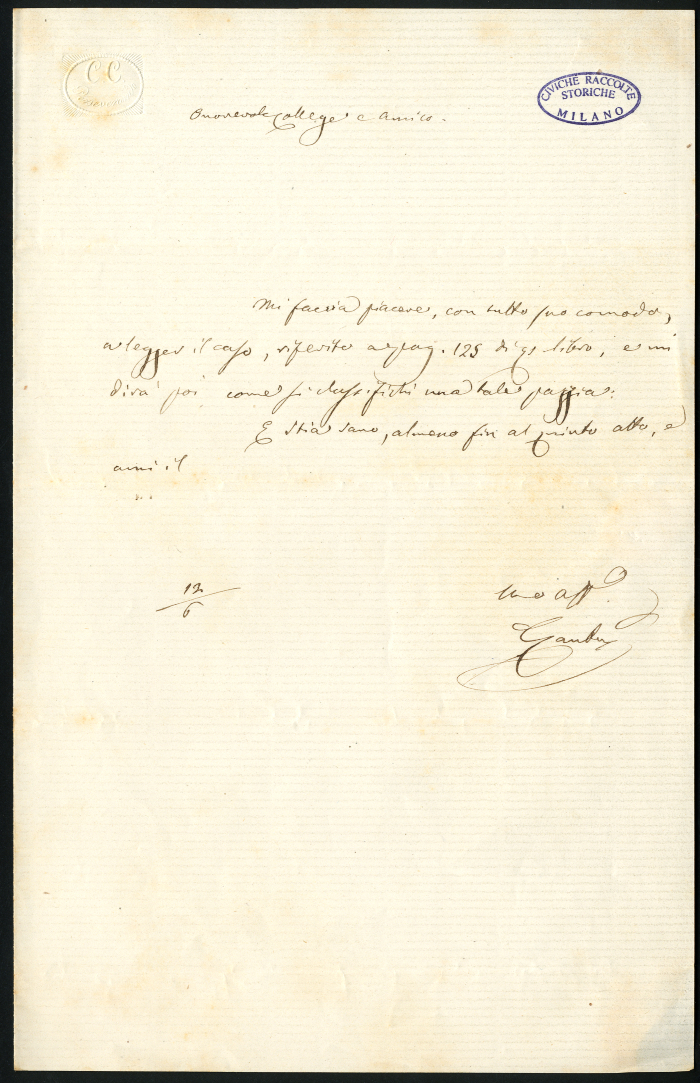 C C
CIVICHE RACCOLTE
STORICHE
MILANO
Onorevole Collega e amico.
Mi faccia piacere, con tutto suo comodo,
a legger il caso, riferito a pag. 125 di qs libro, e mi
dirà poi come si classifichi una tale pazzia.
E stia sano, almeno fin al quinto atto, e
ami il
12/6
suo aff.